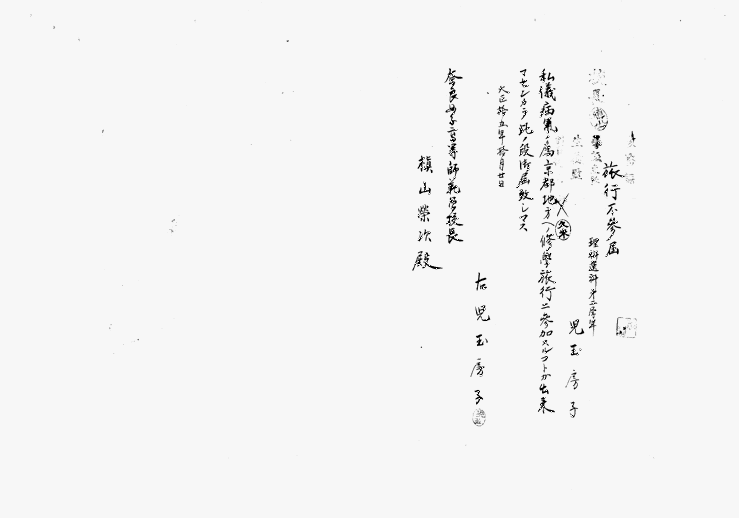 旅行不參届
理科選科第二學年
児玉房子
私儀病氣ノ爲京都地方ヘ修學旅行ニ參加スルコトガ出來
マセンカラ此ノ段御届致シマス
大正拾五年拾月廿日
右 児玉房子
奈良女子高等師範學校長
槇山榮次殿